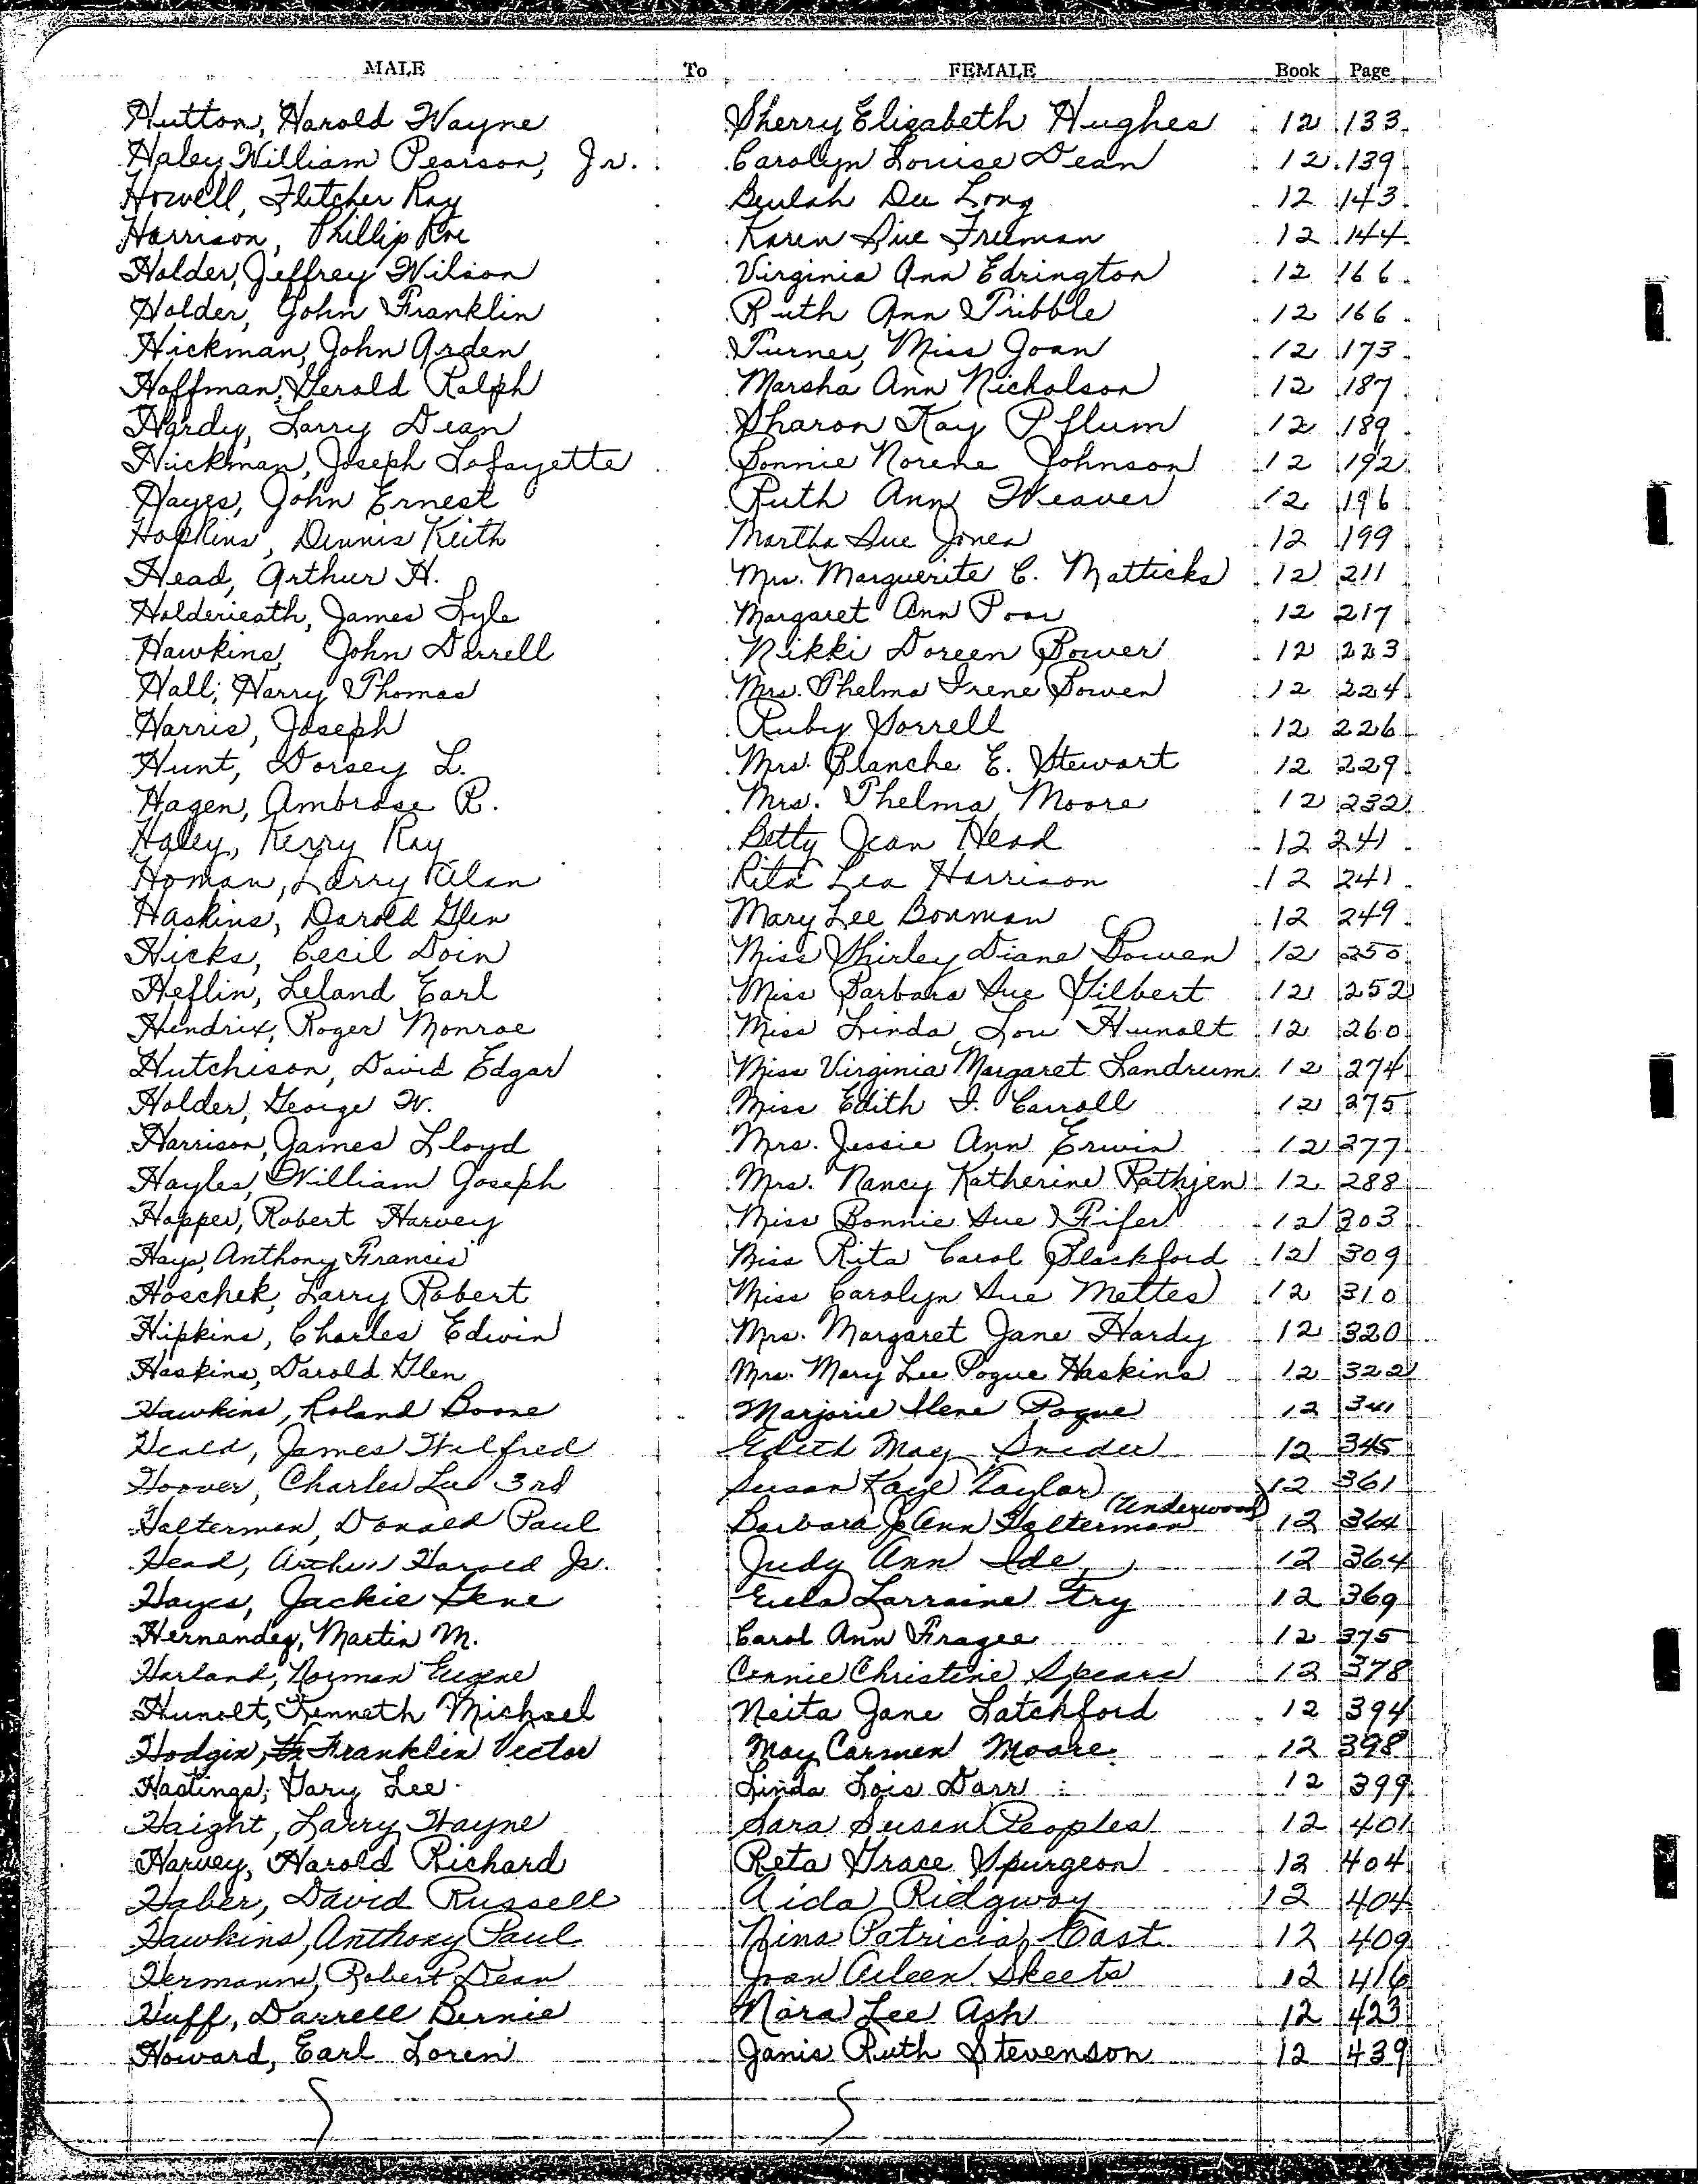 MALE To FEMALE Book Page
Hutton, Harold Wayne Sherry Elizabeth Hughes 12 133
Haley, William Pearson, Jr. Carolyn Louise Dean 12 139
Howell, Fletcher Ray Beulah Dee Long 12 143
Harrison, Phillip Roe Karen Sue Freeman 12 144
Holder, Jeffrey Wilson Virginia Ann Edrington 12 166
Holder, John Franklin Ruth Ann Tribble 12 166
Hickman, John Arden Turner, Miss Joan 12 173
Hoffman, Gerald Ralph Marsha Ann Nicholson 12 187
Hardy, Larry Dean Sharon Kay Pflum 12 189
Hickman, Joseph Lafayette Bonnie Norene Johnson 12 192
Hayes, John Ernest Ruth Ann Weaver 12 196
Hopkins, Dennis Keith Martha Sue Jones 12 199
Head, Arthur H. Mrs. Marguerite C. Matticks 12 211
Holderieath, James Lyle Margaret Ann Poor 12 217
Hawkins, John Darrell Nikki Doreen Bower 12 223
Hall, Harry Thomas Mrs. Thelma Irene Bowen 12 224
Harris, Joseph Ruby Sorrell 12 226
Hunt, Dorsey L. Mrs. Blanche E. Stewart 12 229
Hagen, Ambrose R. Mrs. Thelma Moore 12 232
Haley, Kerry Ray Betty Jean Head 12 241
Homan, Larry Alan Rita Lea Harrison 12 241
Haskins, Darold Glen Mary Lee Bowman 12 249
Hicks, Cecil Doin Miss Shirley Diane Bowen 12 250
Heflin, Leland Earl Miss Barbara Sue Gilbert 12 252
Hendrix, Roger Monroe Miss Linda Lou Hunolt 12 260
Hutchison, David Edgar Miss Virginia Margaret Landrum 12 274
Holder, George W. Miss Edith I. Carroll 12 275
Harrison, James Lloyd Mrs. Jessie Ann Erwin 12 277
Hayles, William Joseph Mrs. Nancy Katherine Rathjen 12 288
Hopper, Robert Harvey Miss Bonnie Sue Fifer 12 303
Hays, Anthony Francis Miss Rita Carol Blackford 12 309
Hoschek, Larry Robert Miss Carolyn Sue Mettes 12 310
Hipkins, Charles Edwin Mrs. Margaret Jane Hardy 12 320
Haskins, Darold Glen Mrs. Mary Lee Pogue Haskins 12 322
Hawkins, Roland Boone Marjorie Ilene Pogue 12 341
Heald, James Wilfred Edith May Snider 12 345
Hoover, Charles Lee 3rd Susan Kaye Taylor 12 361
Halterman, Donald Paul Barbara Ann Halterman (Underwood) 12 364
Head, Arthur Harold Jr. Judy Ann Ide 12 364
Hayes, Jackie Gene Eula Lorraine Fry 12 369
Hernandez, Martin M. Carol Ann Fragee 12 375
Harland, Norman Eugene Connie Christine Spears 12 378
Hunolt, Kenneth Michael Neita Jane Latchford 12 394
Hodgin, Franklin Victor May Carmen Moore 12 398
Hastings, Gary Lee Linda Lois Darr 12 399
Haight, Larry Wayne Sara Susan Peoples 12 401
Harvey, Harold Richard Reta Grace Spurgeon 12 404
Haber, David Russell Aida Ridgway 12 404
Hawkins, Anthony Paul Nina Patricia East 12 409
Hermann, Robert Dean Joan Aileen Skeets 12 416
Huff, Darrell Bernie Nora Lee Ash 12 423
Howard, Earl Loren Janis Ruth Stevenson 12 439